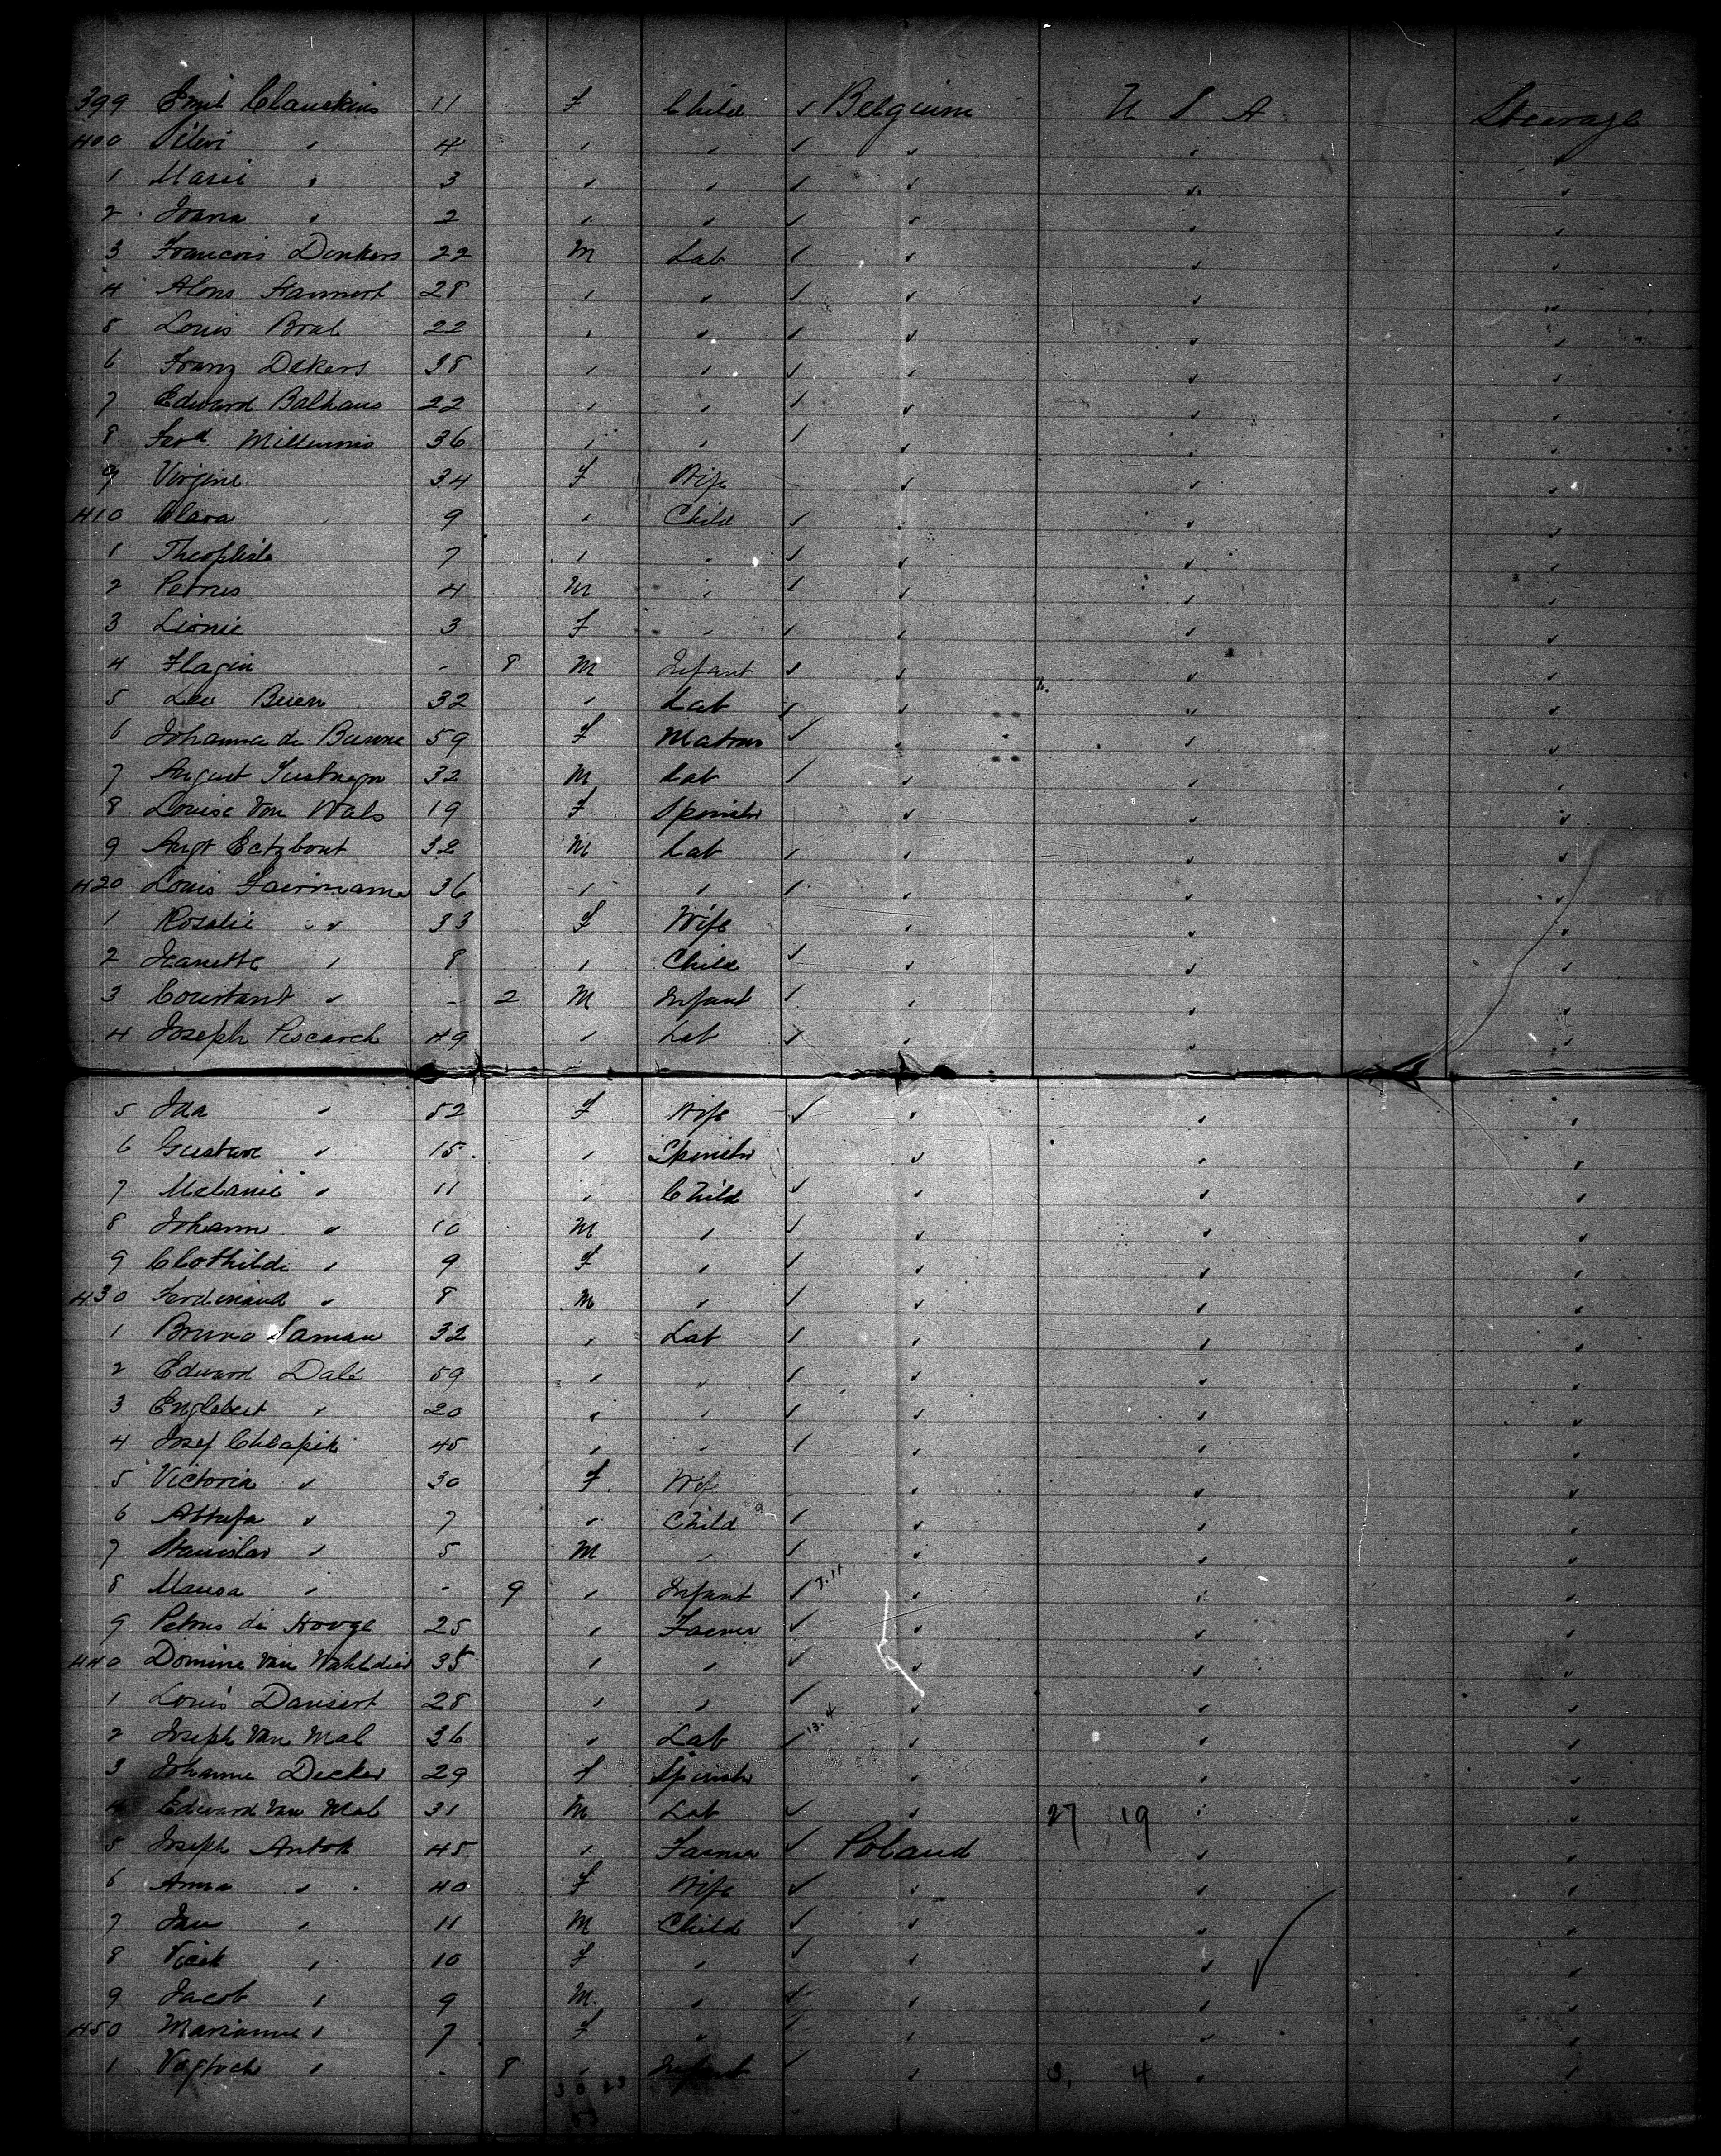 399 Emil Clauckins 11 F Child ✓ Belgium U S A Steerage
400 " 4 " " ✓ " " "
1 Marie " 3 " " ✓ " " "
2 Ivana " 2 " " ✓ " " "
3 Francois Donkers 22 M Lab ✓ " " "
4 Alons Hannert 28 " " ✓ " " "
5 Louis Bral 22 " " ✓ " " "
6 Franz Dekers 38 " " ✓ " " "
7 Edward Balhaus 22 " " ✓ " " "
8 Ferd Millennis 36 " " ✓ " " "
9 Virgine 34 F Wife " " "
410 Clara 9 " Child ✓ " " "
1 Theophile 7 " " ✓ " " "
2 Petrus 4 M " ✓ " " "
3 Lionie 3 F " ✓ " " "
4 Flagin - 8 M Infant ✓ " " "
5 Leo Buen 32 " Lab ✓ " " "
6 Johanna de Burme 59 F Matron ✓ " " "
7 August 32 M Lab ✓ " " "
8 Louise Von Wals 19 F Spinster " " "
9 Augt Ectzbout 32 M Lab ✓ " " "
420 Louis Faurmann 36 " " ✓ " " "
1 Rosalie " 33 F Wife " " "
2 Jeanette " 8 " Child ✓ " " "
3 Constant " - 2 M Infant ✓ " " "
4 Joseph Pescarch 49 " Lab ✓ " " "
5 Ida " 52 F Wife ✓ " " "
6 Gustave " 15 " Spinster " " "
7 Melanie " 11 " Child ✓ " " "
8 Johann " 10 M " ✓ " " "
9 Clothilde " 9 F " ✓ " " "
430 Ferdinand " 8 M " ✓ " " "
1 Bruno Saman 32 " Lab ✓ " " "
2 Edward Dale 59 " " ✓ " " "
3 Englebert " 20 " " ✓ " " "
4 Josef Chlapik 45 " " ✓ " " "
5 Victoria " 30 F Wife " " "
6 " 7 " Child ✓ " " "
7 Stanislav " 5 M " ✓ " " "
8 Mausa " - 9 " Infant ✓ " " "
9 Petrus de Hooge 25 " Farmer ✓ " " "
440 Domine Van 35 " " ✓ " " "
1 Louis Dansert 28 " " ✓ " " "
2 Joseph Van Mal 36 " Lab ✓ 13.4 " " "
3 Johanna Decker 29 f Spinster " " "
4 Edward Van Mal 31 M Lab ✓ " 27 19 " "
5 Joseph Antok 45 " Farmer ✓ Poland " "
6 Anna " 40 F Wife ✓ " " "
7 Jan " 11 M Child ✓ " " "
8 " 10 F " ✓ " " "
9 Jacob " 9 M " ✓ " " "
450 Marianne " 7 F " ✓ " " "
1 " - 8 " Infant ✓ " 3, 4 " "